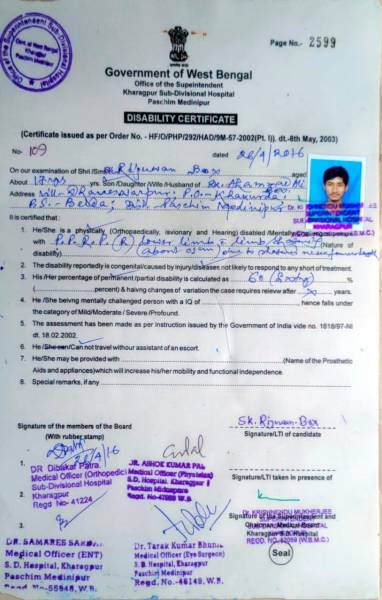 Office of the Superintendent Sub-Divisional Hospital
Govt. of West Bengal
Kharagpur
Paschim Medinipur
Page No.- 2599
Government of West Bengal
Office of the Superintendent
Kharagpur Sub-Divisional Hospital
Paschim Medinipur
DISABILITY CERTIFICATE
(Certificate issued as per Order No. - HF/O/PHP/292/HAD/9M-57-2002(Pt. I). dt.-6th May, 2003)
No- 109 dated 20/4/2016
On our examination of Shri/Smt. Sk Rijuwan Box aged
About 17 yrs yrs. Son/Daughter/Wife/Husband of Sk.
Address Vill- P.O- Khakurda,
P.S:- Belda, Dist. Paschim Medinipur
KHARAGPUR
It is certified that :
1. He/She is a physically, (Orthopaedic, iavisionary and Hearing) disabled /Mentally
with P.P.R.P. (R) lower limb (Nature of
disability)
2. The disability reportedly is congenital/caused by injury/diseases not likely to respond to any short of treatment.
3. His/Her percentage of permanent/partial disability is calculated as 60 (Sixty) %
( percent) & halving changes of variation the case requires relevew after years.
4. He /She being mentally challenged person with a IQ of hence falls under
the category of Mild/Moderate / Severe /Profound.
5. The assessment has been made as per instruction issued by the Government of India vide no. 1618/97-NI
dt. 18.02.2002.
6. He /She can/Can not travel without assistant of an escort.
7. He/She may be provided with (Name of the Prosthetic
Aids and appliances)which will increase his/her mobility and functional independence.
8. Special remarks, if any
Signature of the members of the Board
(With rubber stamp)
Sk. Rijwan Box
Signature/LTI of candidate
20/4/16
1.
DR Dibakar Patra
Medical Officer (Orthopedic)
Sub-Divisional Hospital
Kharagpur
Regd No- 41224
DR. ASHOK KUMAR PAL
Medical Officer (Physician)
S.D. Hospital, Kharagpur
Paschim Midnapore
Signature/LTI taken in presence of
2.
3.
DR. SAMARES SARKAR
Medical Officer (ENT)
S. D. Hospital, Kharagpur
Paschim Medinipur
Regd. No-55948, W.B.
Dr. Tarak Kumar Bhunia
Medical Officer (Eye Surgeon)
S. D. Hospital, Kharagpur
Paschim Medinipur
Regd. No.-46148, W.B.
Dr. KRISHNENDU MUKHERJEE
Signature of the Superintendent and
Chairman, Medical Board
Kharagpur S.D. Hospital
REGD. NO.-52059 (W.B.M.C.)
Seal